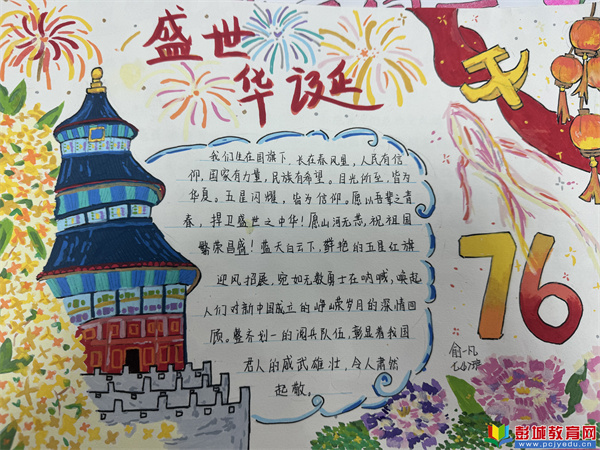 盛世
华诞
我们生在国旗下，长在春风里，人民有信
仰，国家有力量，民族有希望。目光所至，皆为
华夏。五星闪耀，皆为信仰。愿以吾辈之青
春，捍卫盛世之中华！愿山河无恙，祝祖国
繁荣昌盛！蓝天白云下，鲜艳的五星红旗
迎风招展，宛如无数勇士在呐喊，唤起
人们对新中国成立的峥嵘岁月的深情回
顾。整齐划一的阅兵队伍，彰显着我国
军人的威武雄壮，令人肃然
起敬。
76
俞一凡
彭城教育网
www.pcjyedu.cn